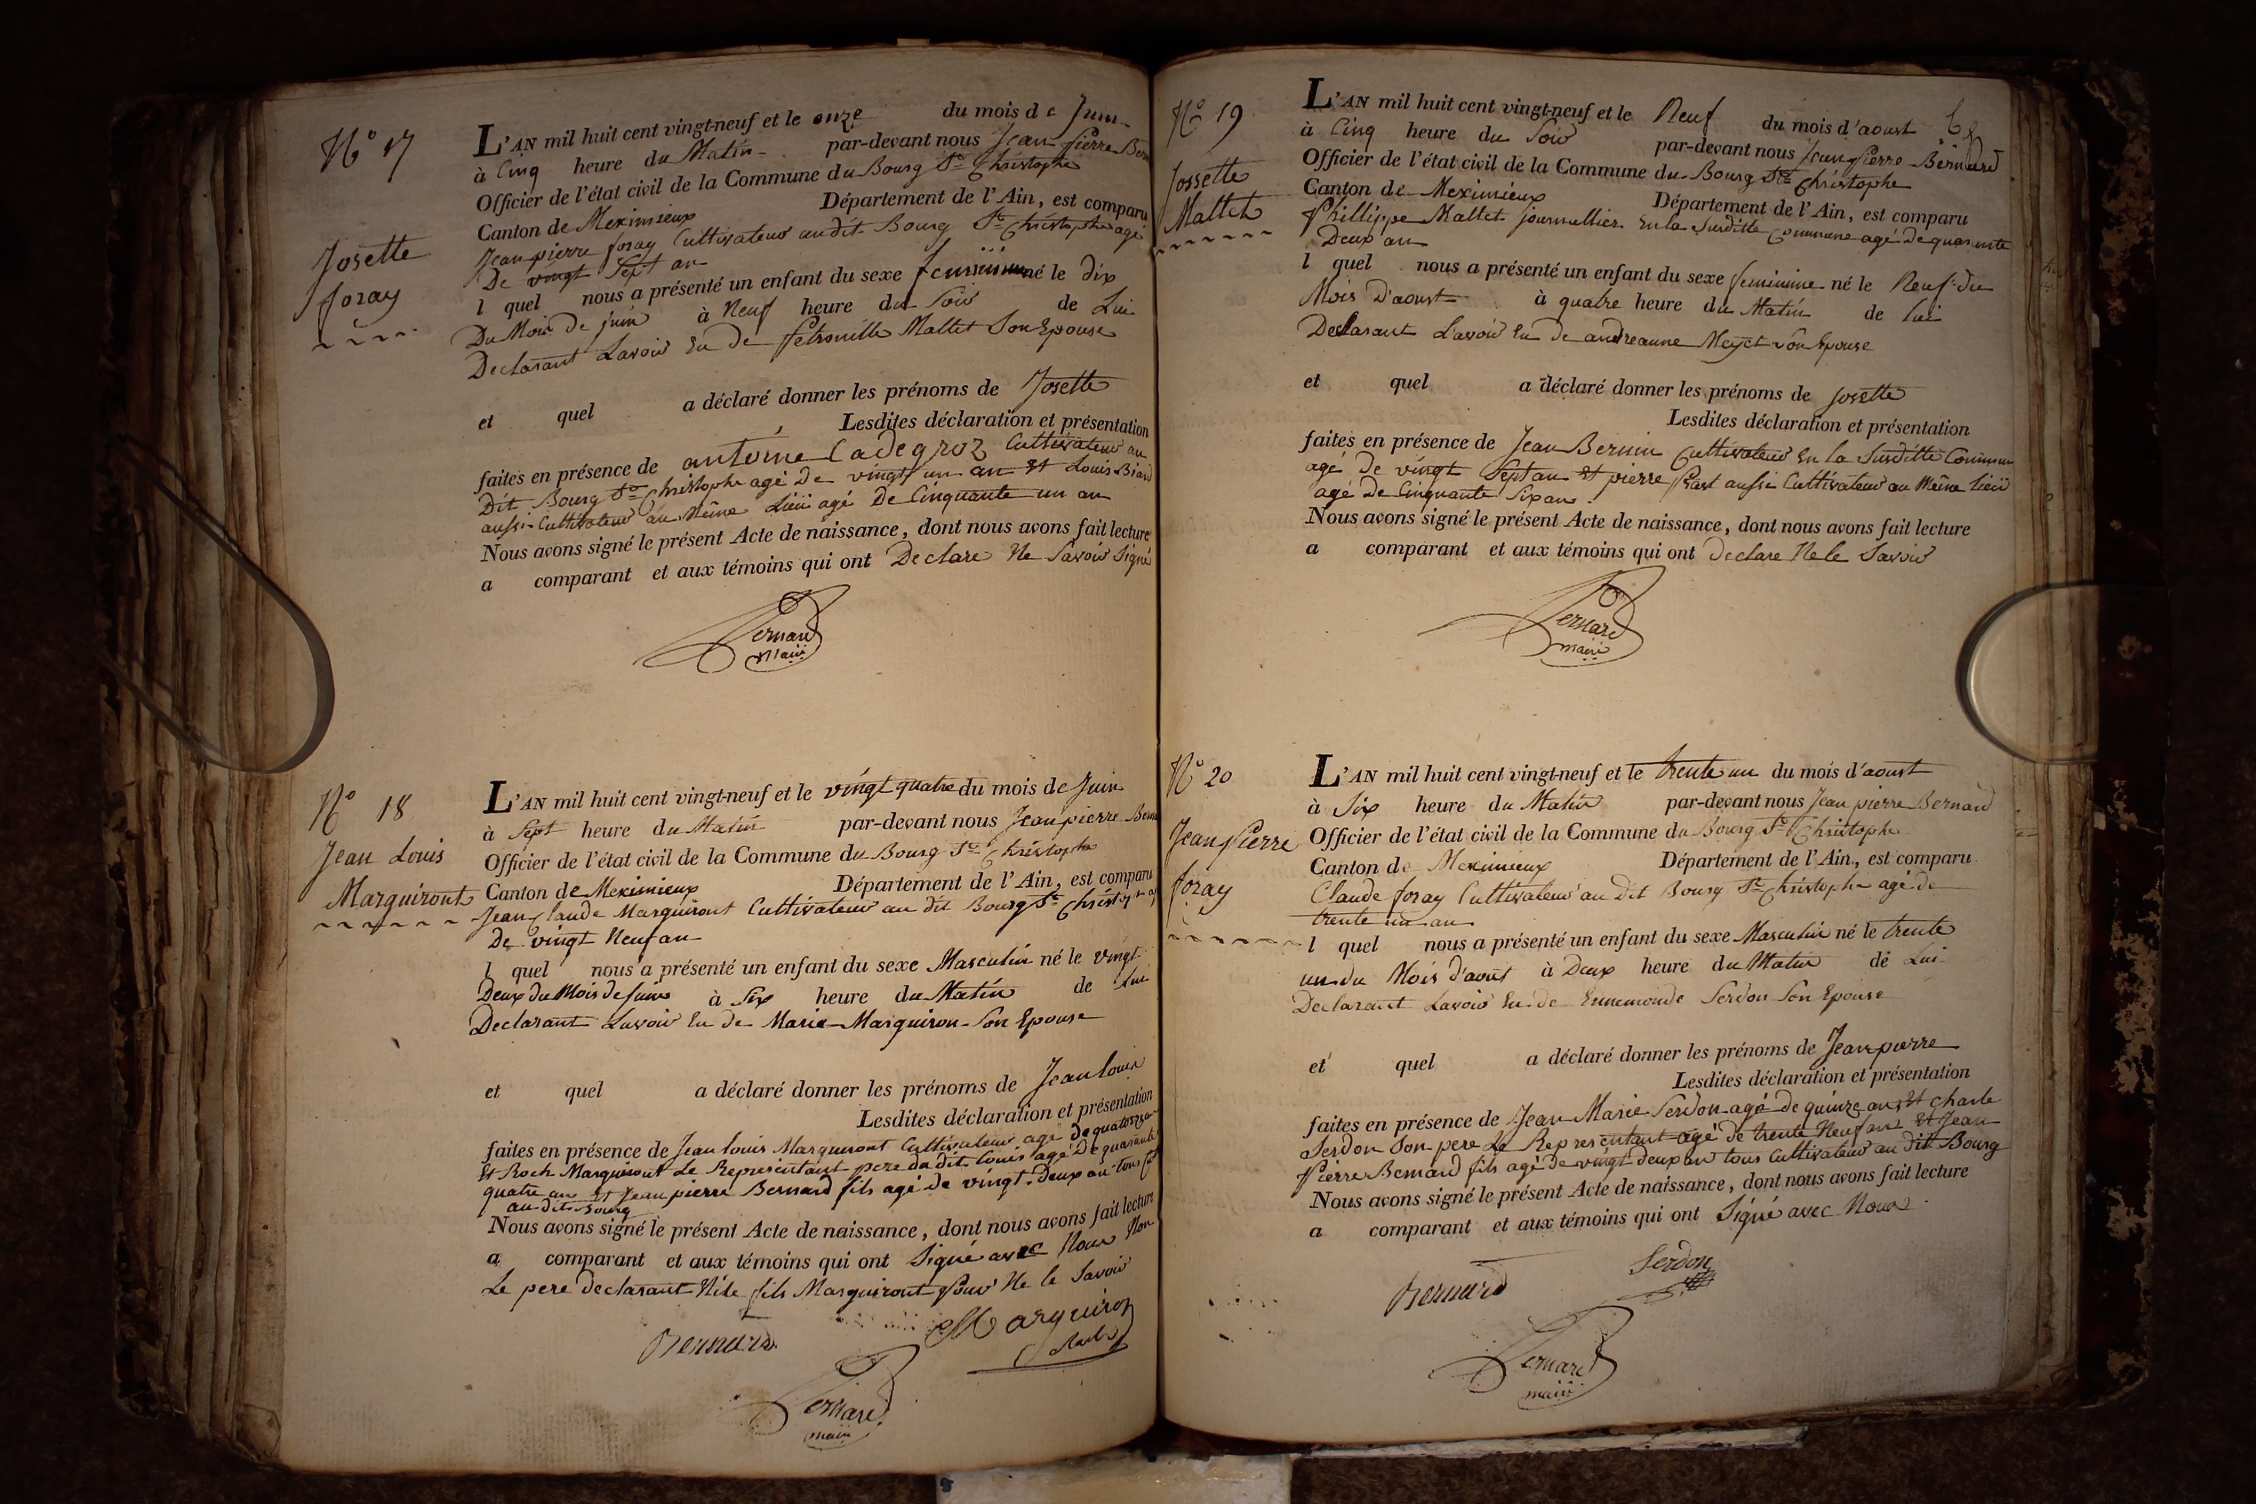 N.o 17
Josette
foray
L'AN mil huit cent vingt-neuf et le onze du mois de Juin
à Cinq heure du Matin par-devant nous Jean pierre Bern
Officier de l'état civil de la Commune du Bourg St Christophe
Canton de Meximieux Département de l'Ain, est comparu
Jean pierre foray Cultivateur au dit Bourg St Christophe agé
De vingt Sept an
l quel nous a présenté un enfant du sexe feminin né le dix
Du Mois de juin à Neuf heure du Soir de Lui
Declarant Lavoir Eu de Petronille Mallet Son Epouse
et quel a déclaré donner les prénoms de Josette
Lesdites déclaration et présentation
faites en présence de antoine Cadegroz Cultivateur au
Dit Bourg St Christophe agé De vingt un an Et Louis Biard
aussi Cultivateur au Même Lieu agé De Cinquante un an
Nous avons signé le présent Acte de naissance, dont nous avons fait lecture
a comparant et aux témoins qui ont Declare Ne Savoir Signé
Bernard
maire
N.o 18
Jean Louis
Marguiront
L'AN mil huit cent vingt-neuf et le vingt quatre du mois de Juin
à Sept heure du Matin par-devant nous Jean pierre Bern
Officier de l'état civil de la Commune du Bourg St Christophe
Canton de Meximieux Département de l'Ain, est comparu
Jean Claude Marguiront Cultivateur au dit Bourg St Christophe
De vingt Neuf an
l quel nous a présenté un enfant du sexe Masculin né le vingt
Deux du Mois de Juin à Six heure du Matin de Lui
Declarant Lavoir Eu de Marie Marguiron Son Epouse
et quel a déclaré donner les prénoms de Jean louis
Lesdites déclaration et présentation
faites en présence de Jean louis Marguiront Cultivateur agé de quatorze
Et Roch Marguiront Le Representant pere du dit Louis agé De quarante
quatre an et Jean pierre Bernard fils agé de vingt Deux an tous
au dit Bourg
Nous avons signé le présent Acte de naissance, dont nous avons fait lecture
a comparant et aux témoins qui ont Signé avec Nous Non
Le pere declarant Ni le fils Marguiront Pour Ne le Savoir
Bernard
Marguiron
Bernard
maire
N.o 19
Jossette
Mallet
L'AN mil huit cent vingt-neuf et le Neuf du mois d'aoust
à Cinq heure du Soir par-devant nous Jean Pierre Bernard
Officier de l'état civil de la Commune du Bourg St Christophe
Canton de Meximieux Département de l'Ain, est comparu
Phillippe Mallet journallier En la Susditte Commune agé De quarante
Deux an
l quel nous a présenté un enfant du sexe feminine né le Neuf du
Mois D'aoust à quatre heure du Matin de lui
Declarant Lavoir Eu de andreanne Meyet son Epouse
et quel a déclaré donner les prénoms de josette
Lesdites déclaration et présentation
faites en présence de Jean Bernin Cultivateur En la Susditte Commun
agé De vingt Sept an Et pierre aussi Cultivateur au Même Lieu
agé De Cinquante Six an
Nous avons signé le présent Acte de naissance, dont nous avons fait lecture
a comparant et aux témoins qui ont Declare Ne le Savoir
Bernard
maire
N.o 20
Jean Pierre
foray
L'AN mil huit cent vingt-neuf et le trente un du mois d'aoust
à Six heure du Matin par-devant nous Jean pierre Bernard
Officier de l'état civil de la Commune du Bourg St Christophe
Canton de Meximieux Département de l'Ain, est comparu
Claude foray Cultivateur au Dit Bourg St Christophe agé de
trente un an
l quel nous a présenté un enfant du sexe Masculin né le trente
un du Mois d'aout à Deux heure du Matin de Lui
Declarant Lavoir Eu de Ennemonde Serdon Son Epouse
et quel a déclaré donner les prénoms de Jean pierre
Lesdites déclaration et présentation
faites en présence de Jean Marie Serdon agé de quinze an Et charle
Serdon Son pere Le Representant agé de trente Neuf an Et Jean
Pierre Bernard fils agé de vingt deux an tous Cultivateur au dit Bourg
Nous avons signé le présent Acte de naissance, dont nous avons fait lecture
a comparant et aux témoins qui ont Signé avec Nous
Serdon
Bernard
Bernard
maire